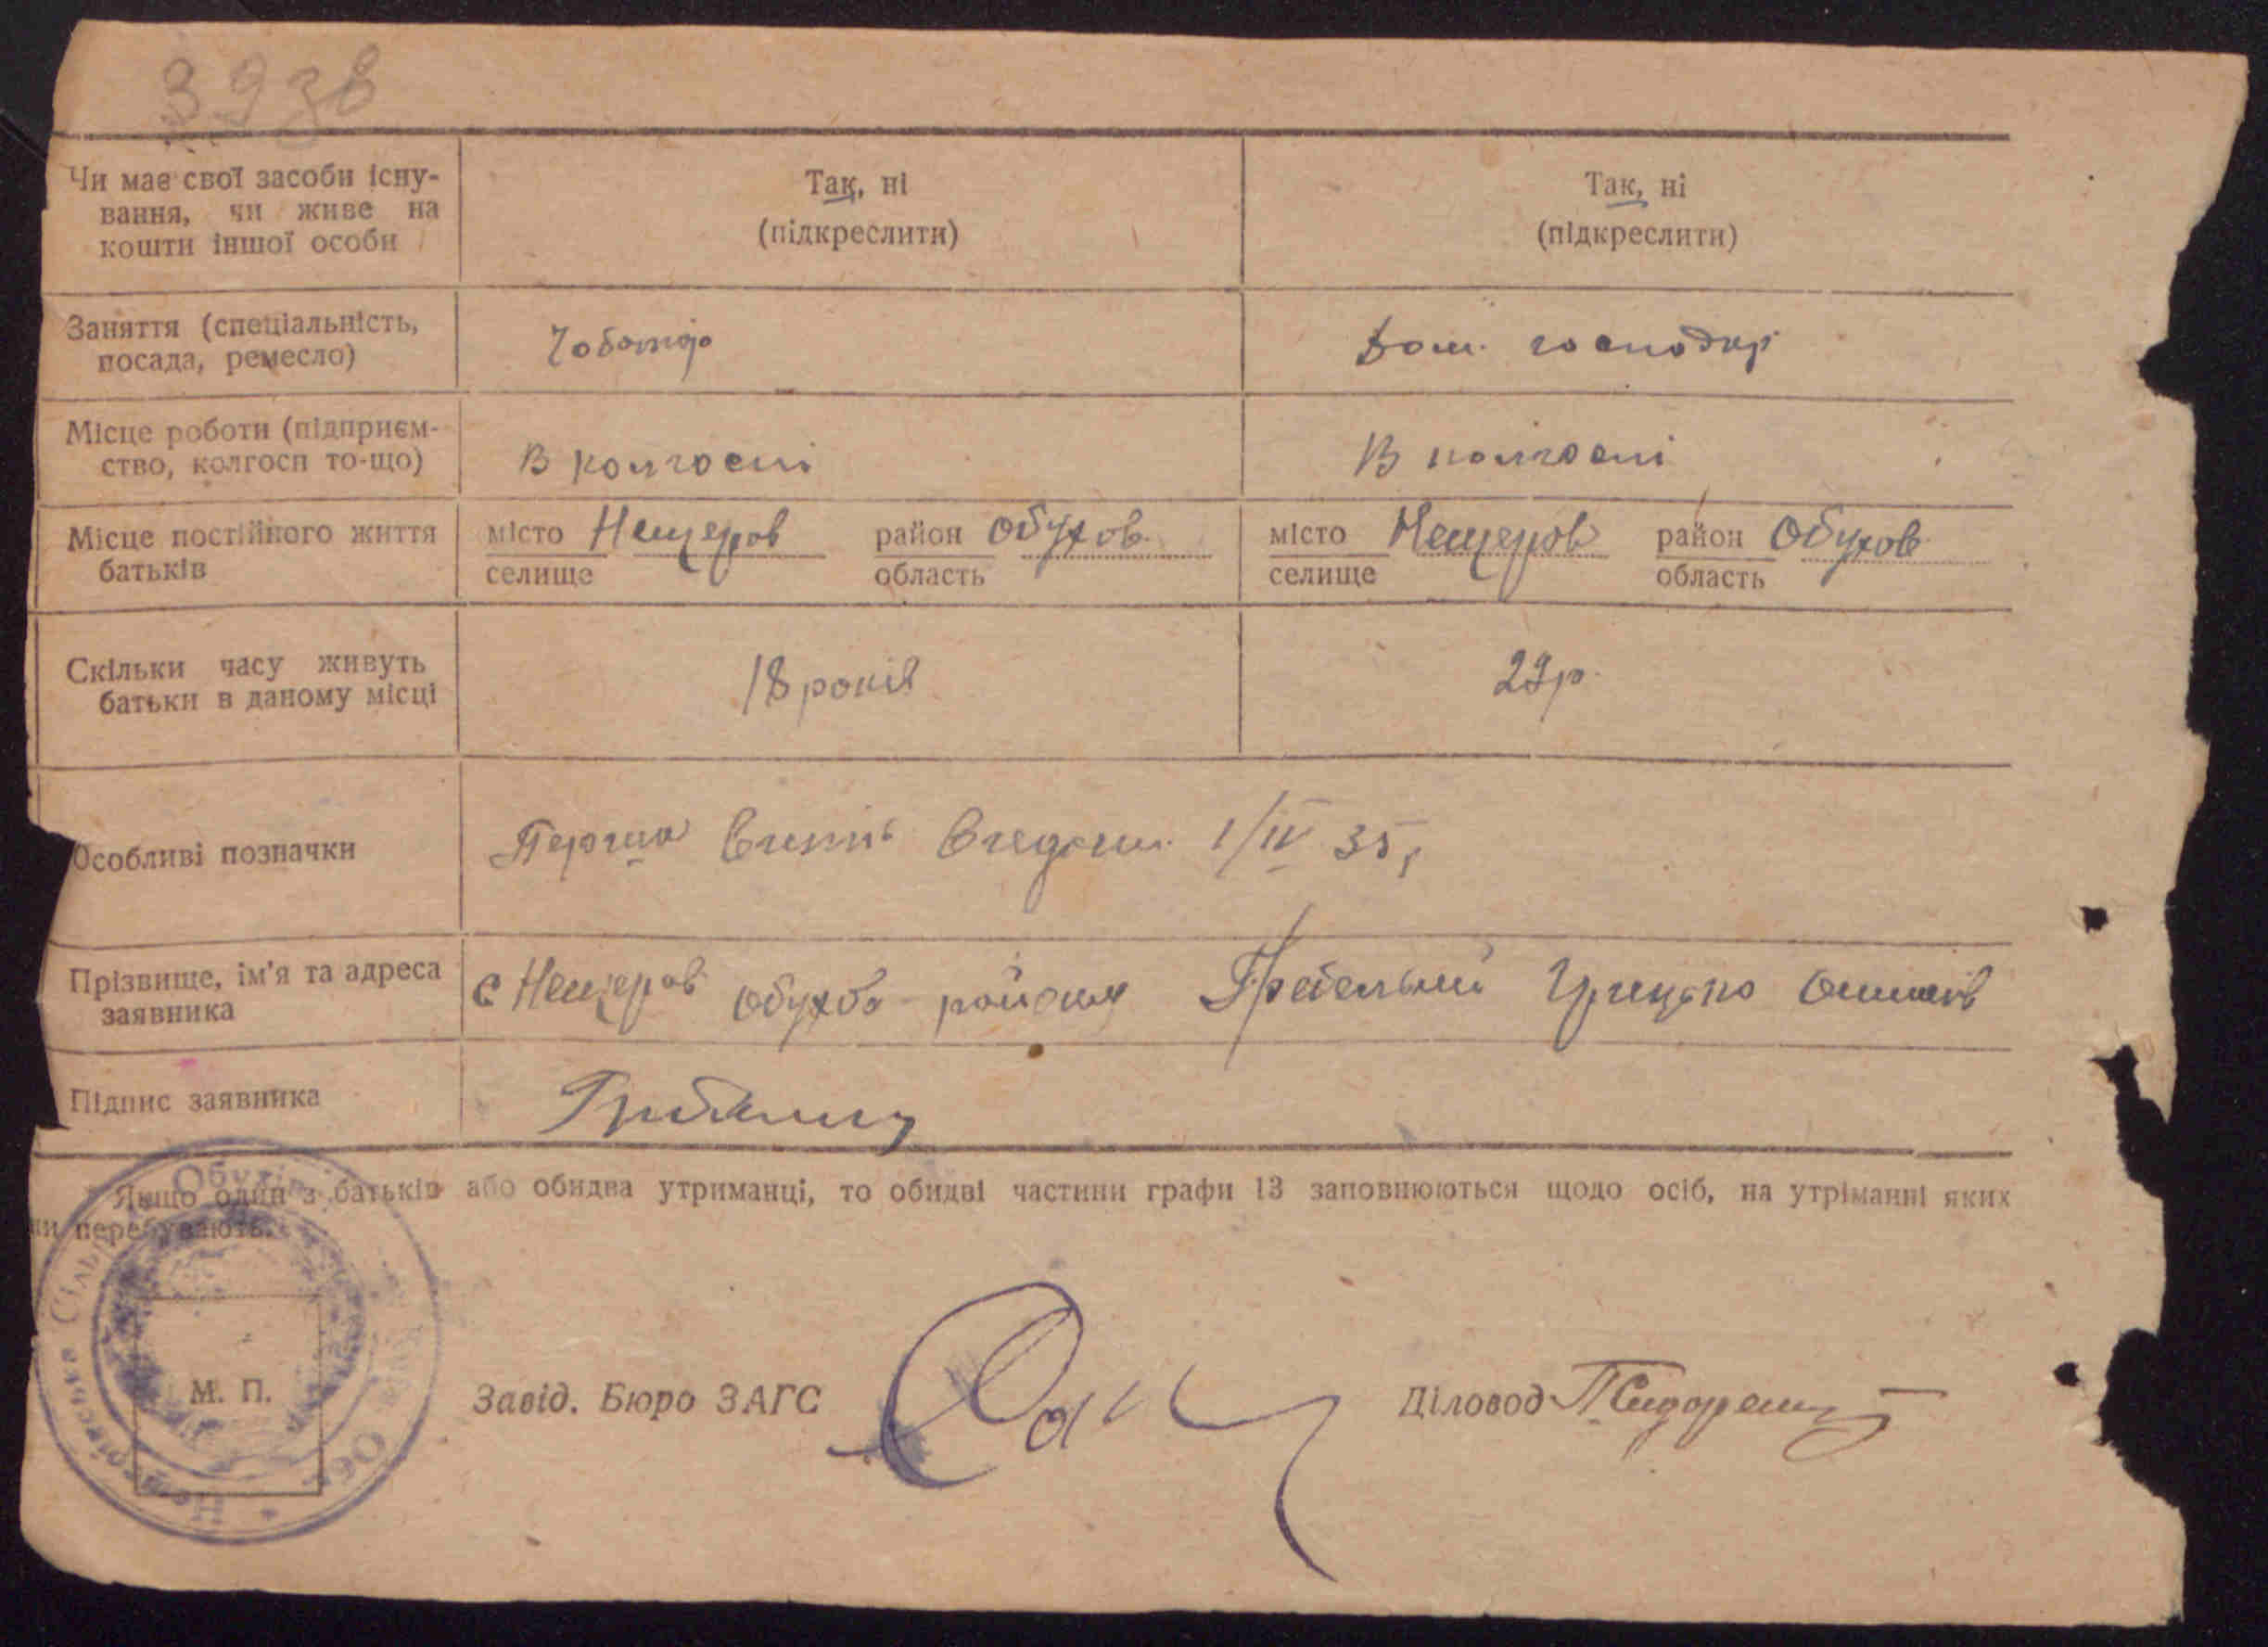 393в
Чи має свої засоби існу-
вання, чи живе на
кошти іншої особи
Так, ні
(підкреслити)
Так, ні
(підкреслити)
Заняття (спеціальність,
посада, ремесло)
Чоботар
Дом. господар
Місце роботи (підприєм-
ство, колгосп то-що)
В колгоспі
В колгоспі
Місце постійного життя
батьків
місто Нещеров район Обухов
селище область
місто Нещеров район Обухов
селище область
Скільки часу живуть
батьки в даному місці
18 років
29 р.
Особливі позначки
Перша 1/IV 35
Прізвище, ім'я та адреса
заявника
с Нещеров району Грицько
Підпис заявника
Якщо один з батьків або обидва утриманці, то обидві частини графи 13 заповнюються щодо осіб, на утріманні яких
ни перебувають.
М. П.
Завід. Бюро ЗАГС
Діловод П Сидоренко